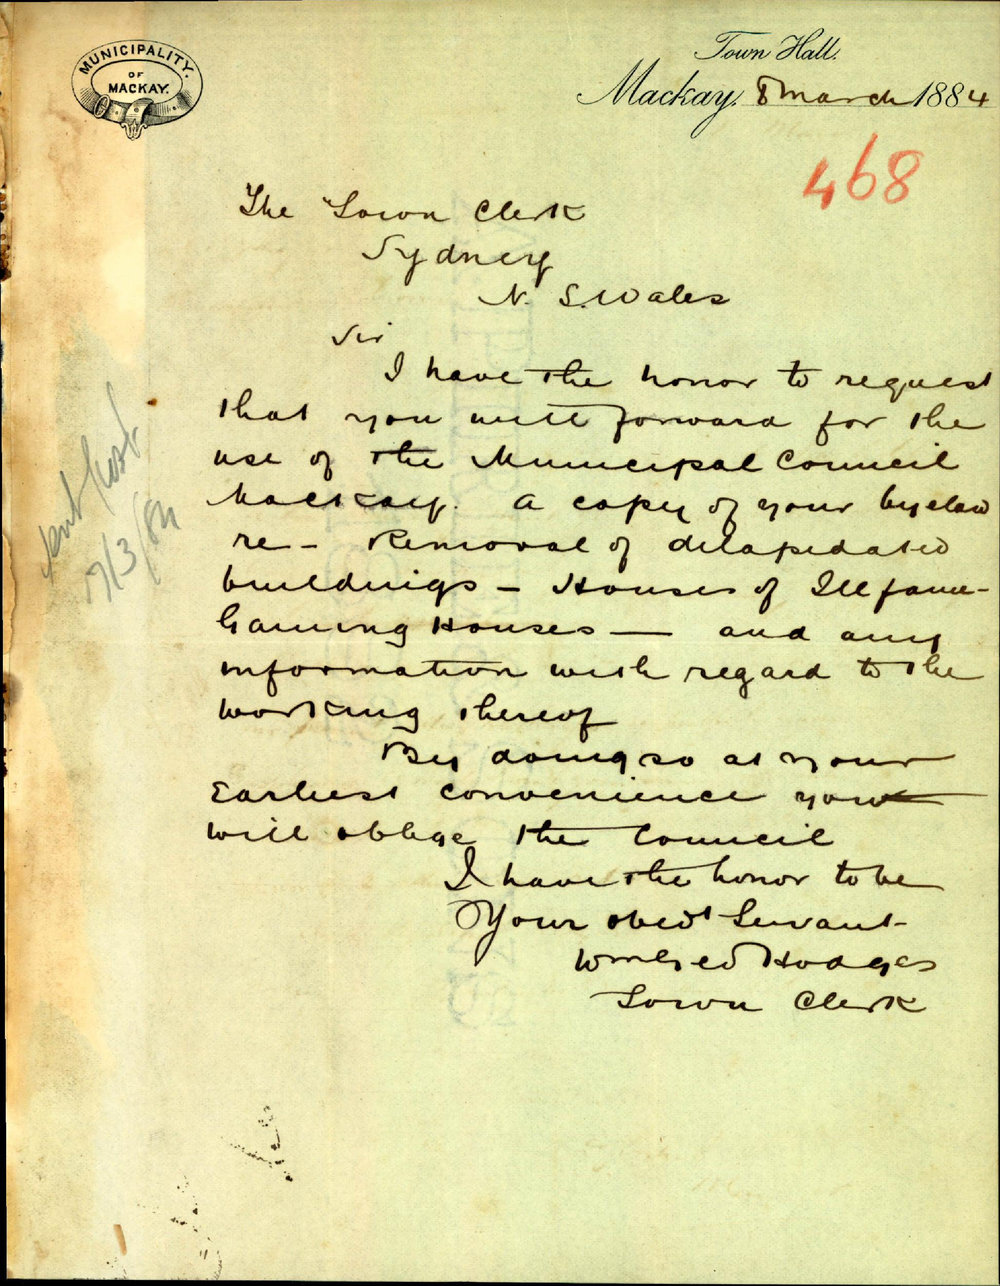 MUNICIPALITY.
OF
MACKAY.
Town Hall.
Mackay, 8 March 1884
468
The Town Clerk
Sydney
N. S. Wales
Sir
I have the honor to request
that you will forward for the
use of the Municipal Council
Mackay. A copy of your byelaw
re - Removal of dilapidated
buildings - Houses of Ill fame -
Gaming Houses - and any
information with regard to the
working thereof
By doing so at your
Earliest convenience you
will oblige the Council
I have the honor to be
Your obedt Servant
Hodges
Town Clerk
sent post
/3/84